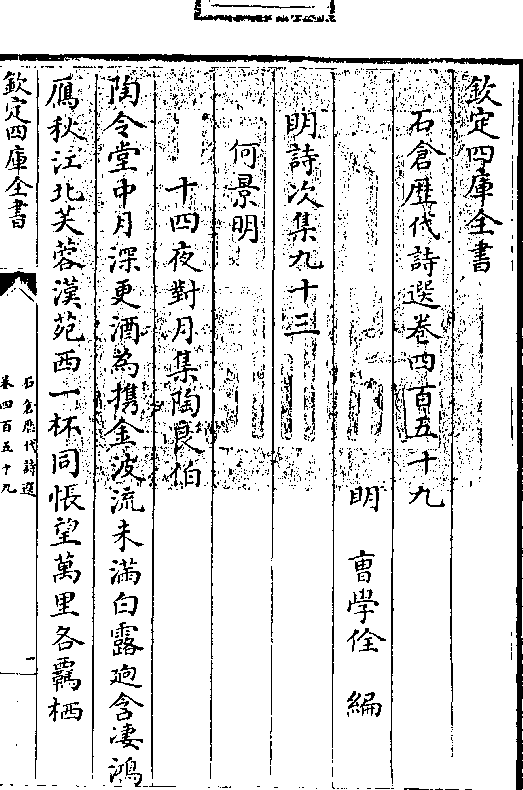 欽定四庫全書
石倉歴代詩選卷四百五十九
明　曹學佺　編
明詩次集九十三
何景明
十四夜對月集陶良伯
陶令堂中月深更酒為携金波流未滿白露廹含凄鴻
鴈秋江北芙蓉漢苑西一杯同悵望萬里各覊栖
欽定四庫全書
石倉歴代詩選
卷四百五十九
一